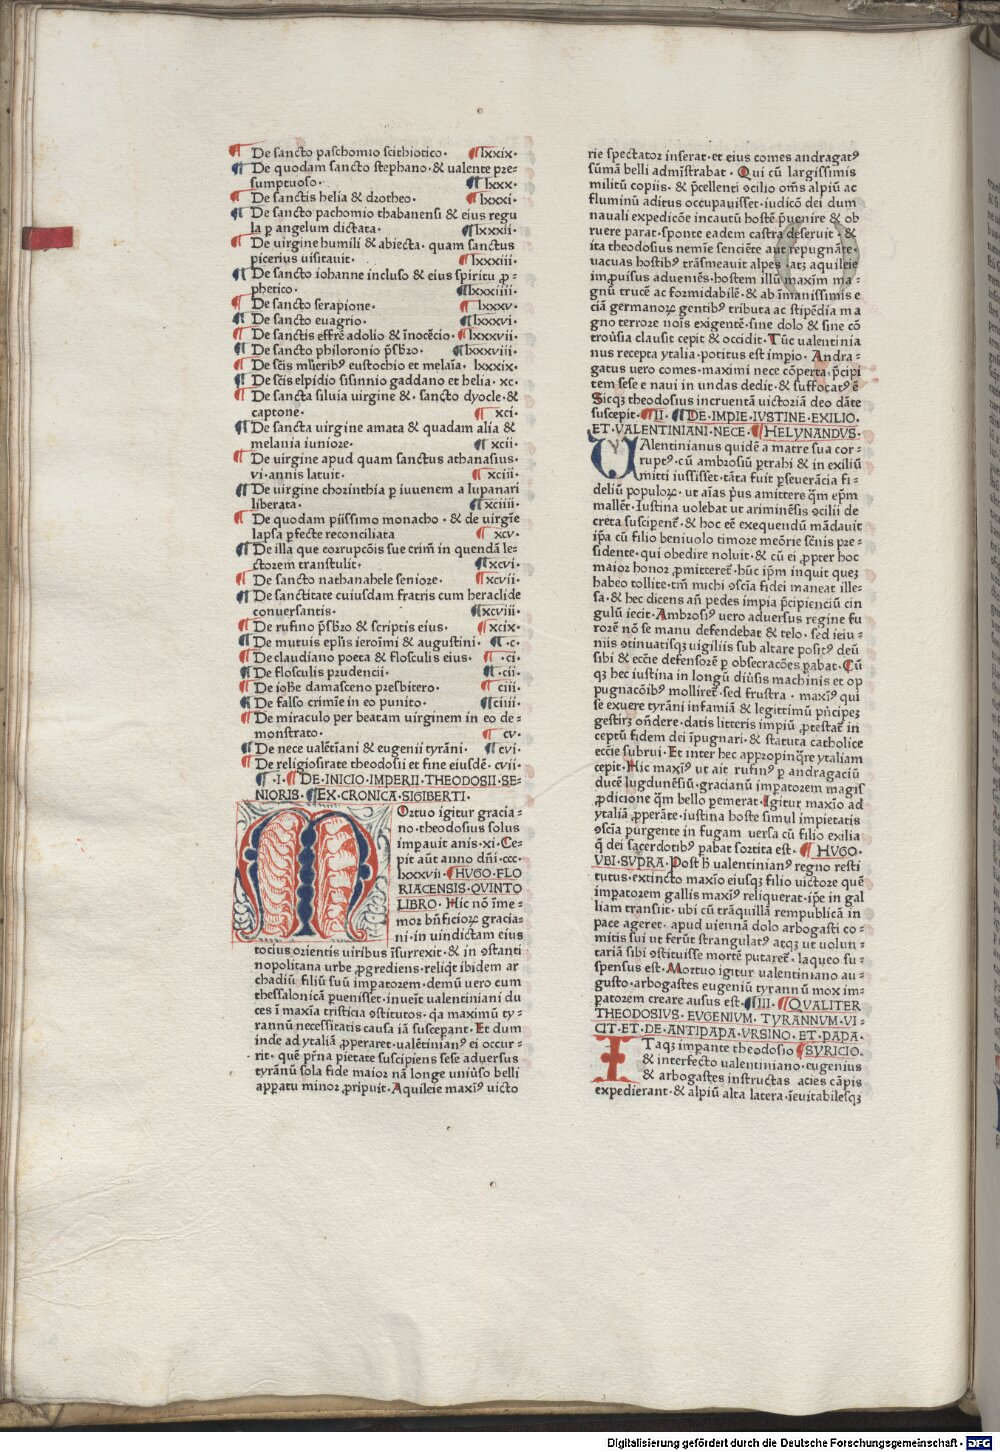 De sancto paschomio scithiotico· lxxix·
De quodam sancto stephano·& ualente pre=
sumptuoso· lxxx·
De sanctis helia & dorotheo· lxxxi·
De sancto pachomio thabanensi & eius regu
la ꝑ angelum dictata· lxxxii·
De uirgine humili & abiecta· quam sanctus
picerius uisitauit· lxxxiii·
De sancto iohanne incluso & eius spiritu ꝓ=
phetico· lxxxiiii·
De sancto serapione· lxxxv·
De sancto euagrio· lxxxvi·
De sanctis effrē adolio & īnocēcio· lxxxvii·
De sancto philoronio p̄sbꝛo· lxxxviii·
De sc̄is mlierib⁹ eustochio et melaīa· lxxxix·
De sc̄is elpidio sisinnio gaddano et helia· xc·
De sancta siluia uirgine &· sancto dyocle &
captone· xci·
De sancta uirgine amata & quadam alia &
melania iuniore· xcii·
De uirgine apud quam sanctus athanasius·
vi·annis latuit· xciii·
De uirgine chorinthia ꝑ iuuenem a lupanari
liberata· xciiii·
De quodam piissimo monacho·& de uirgīe
lapsa ꝑfecte reconciliata xcv·
De illa que corrupcōis sue crim̄ in quendā le=
ctorem transtulit· xcvi·
De sancto nathanahele seniore· xcvii·
De sanctitate cuiusdam fratris cum heraclide
conuersantis· xcviii·
De rufino p̄sbꝛo & scriptis eius· xcix·
De mutuis ep̄lis ieroīmi & augustini· ·c·
De claudiano poeta & flosculis eius· ·ci·
De flosculis prudencii· ·cii·
De iohe damasceno presbitero· ciii·
De falso crimīe in eo punito· ciiii·
De miraculo per beatam uirginem in eo de=
monstrato· cv·
De nece ualētīani & eugenii tyrāni· cvi·
De religiositate theodosii et fine eiusdē· cvii·
·I· DE·INICIO·IMPERII·THEODOSII·SE=
NIORIS· EX·CRONICA·SIGIBERTI·
MOrtuo igitur gracia=
no·theodosius solus
impauit anis·xi·Ce=
pit aūt anno dn̄i·ccc·
lxxxvii· HVGO·FLO
RIACENSIS·QVINTO
LIBRO· Hic nō īme=
mor bn̄ficioꝝ gracia=
ni·in uindictam eius
tocius orientis uiribus īsurrexit·& in ꝯstanti
nopolitana urbe ꝓgrediens·reliq̄t ibidem ar
chadiū filiū suū impatorem·demū uero cum
thessalonicā ꝑuenisset·inueīt ualentiniani du
ces ī maxīa tristicia ꝯstitutos·qa maximū ty=
rannū necessitatis causa iā suscepant·Et dum
inde ad ytaliā ꝓperaret·ualētinian⁹ ei occur=
rit·quē p̄rna pietate suscipiens sese aduersus
tyrānū sola fide maior nā longe uniuso belli
appatu minor ꝓripuit·Aquileie maxī⁹ uicto
rie spectator inserat·et eius comes andragat⁹
sūmā belli admīstrabat·Qui cū largissimis
militū copiis·& p̄cellenti ꝯcilio om̄s alpiū ac
fluminū aditus occupauisset·iudicō dei dum
nauali expedicōe incautū hostē p̄uenire & ob
ruere parat·sponte eadem castra deseruit·&
ita theodosius nemīe senciēte aut repugnāte·
uacuas hostib⁹ trāsmeauit alpes·atꝫ aquileie
improuisus adueniēs·hostem illū maxim ma=
gnū trucē ac formidabilē·& ab īmanissimis e
ciā germanoꝝ gentib⁹ tributa ac stipēdia ma
gno terrore nois exigentē·sine dolo & sine cō
trousia clausit cepit & occidit·Tūc ualentinia
nus recepta ytalia·potitus est impio·Andra=
gatus uero comes·maximi nece cōperta·p̄cipi
tem sese e naui in undas dedit·& suffocat⁹ ē
Sicqꝫ theodosius incruentā uictoriā deo dāte
suscepit· II· DE·IMPIE·IVSTINE·EXILIO·
ET·VALENTINIANI·NECE· HELYNANDVS·
VAlentinianus quidē a matre sua cor=
rupt⁹·cū ambrosiū ꝑtrahi & in exiliū
mitti iussisset·tāta fuit ꝑseuerācia fi=
deliū populoꝝ·ut aīas p̄us amittere q̄m ep̄m
mallēt·Iustina uolebat ut ariminēsis ꝯcilii de
creta susciperēt·& hoc eē exequendū mādauit
ip̄a cū filio beniuolo timore meōrie sēnis pre=
sidente·qui obedire noluit·& cū ei ꝓpter hoc
maior honor ꝓmitteret̄·hūc ip̄m inquit queꝫ
habeo tollite·tm̄ michi ꝯscīa fidei maneat ille=
sa·& hec dicens an̄ pedes impia p̄cipienciū cin
gulū iecit·Ambrosi⁹ uero aduersus regine fu
rorē nō se manu defendebat & telo·sed ieiu=
niis ꝯtinuatisqꝫ uigiliis sub altare posit⁹ deū
sibi & ecc̄ie defensorē ꝑ obsecracōes ꝑabat·Cū
qꝫ hec iustina in longū diūsis machinis et op
pugnacōib⁹ molliret̄·sed frustra·maxī⁹ qui
se exuere tyrāni infamiā & legittimū pn̄cipeꝫ
gestirꝫ on̄dere·datis litteris impiū ꝓtestat̄ in
ceptū fidem dei īpugnari·& statuta catholice
ecc̄ie subrui·Et inter hec appropinq̄re ytaliam
cepit·Hic maxī⁹ ut ait rufin⁹ ꝑ andragaciū
ducē lugdunēsiū·gracianū impatorem magis
ꝓdicione q̄m bello ꝑemerat·Igitur maxīo ad
ytaliā ꝓperāte·iustina hoste simul impietatis
ꝯscīa purgente in fugam uersa cū filio exilia
q̄ dei sacerdotib⁹ pabat sortita est· HVGO·
VBI·SVPRA·Post h̄ ualentinian⁹ regno resti
tutus·extincto maxīo eiusqꝫ filio uictore quē
impatorem gallis maxī⁹ reliquerat·ip̄e in gal
liam transiit·ubi cū trāquillā rempublicā in
pace ageret·apud uiennā dolo arbogasti co=
mitis sui ut ferūt strangulat⁹ atqꝫ ut uolun=
tariā sibi ꝯstituisse mortē putaret̄·laqueo su=
spensus est·Mortuo igitur ualentiniano au=
gusto·arbogastes eugeniū tyrannū mox im=
patorem creare ausus est· III· QVALITER
THEODOSIVS·EVGENIVM·TYRANNVM·VI=
CIT·ET·DE·ANTIPAPA·VRSINO·ET·PAPA·
ITaqꝫ impante theodosio SYRICIO·
& interfecto ualentiniano·eugenius
& arbogastes instructas acies cāpis
expedierant·& alpiū alta latera·īeuitabilesqꝫ
Digitalisierung gefördert durch die Deutsche Forschungsgemeinschaft - DFG